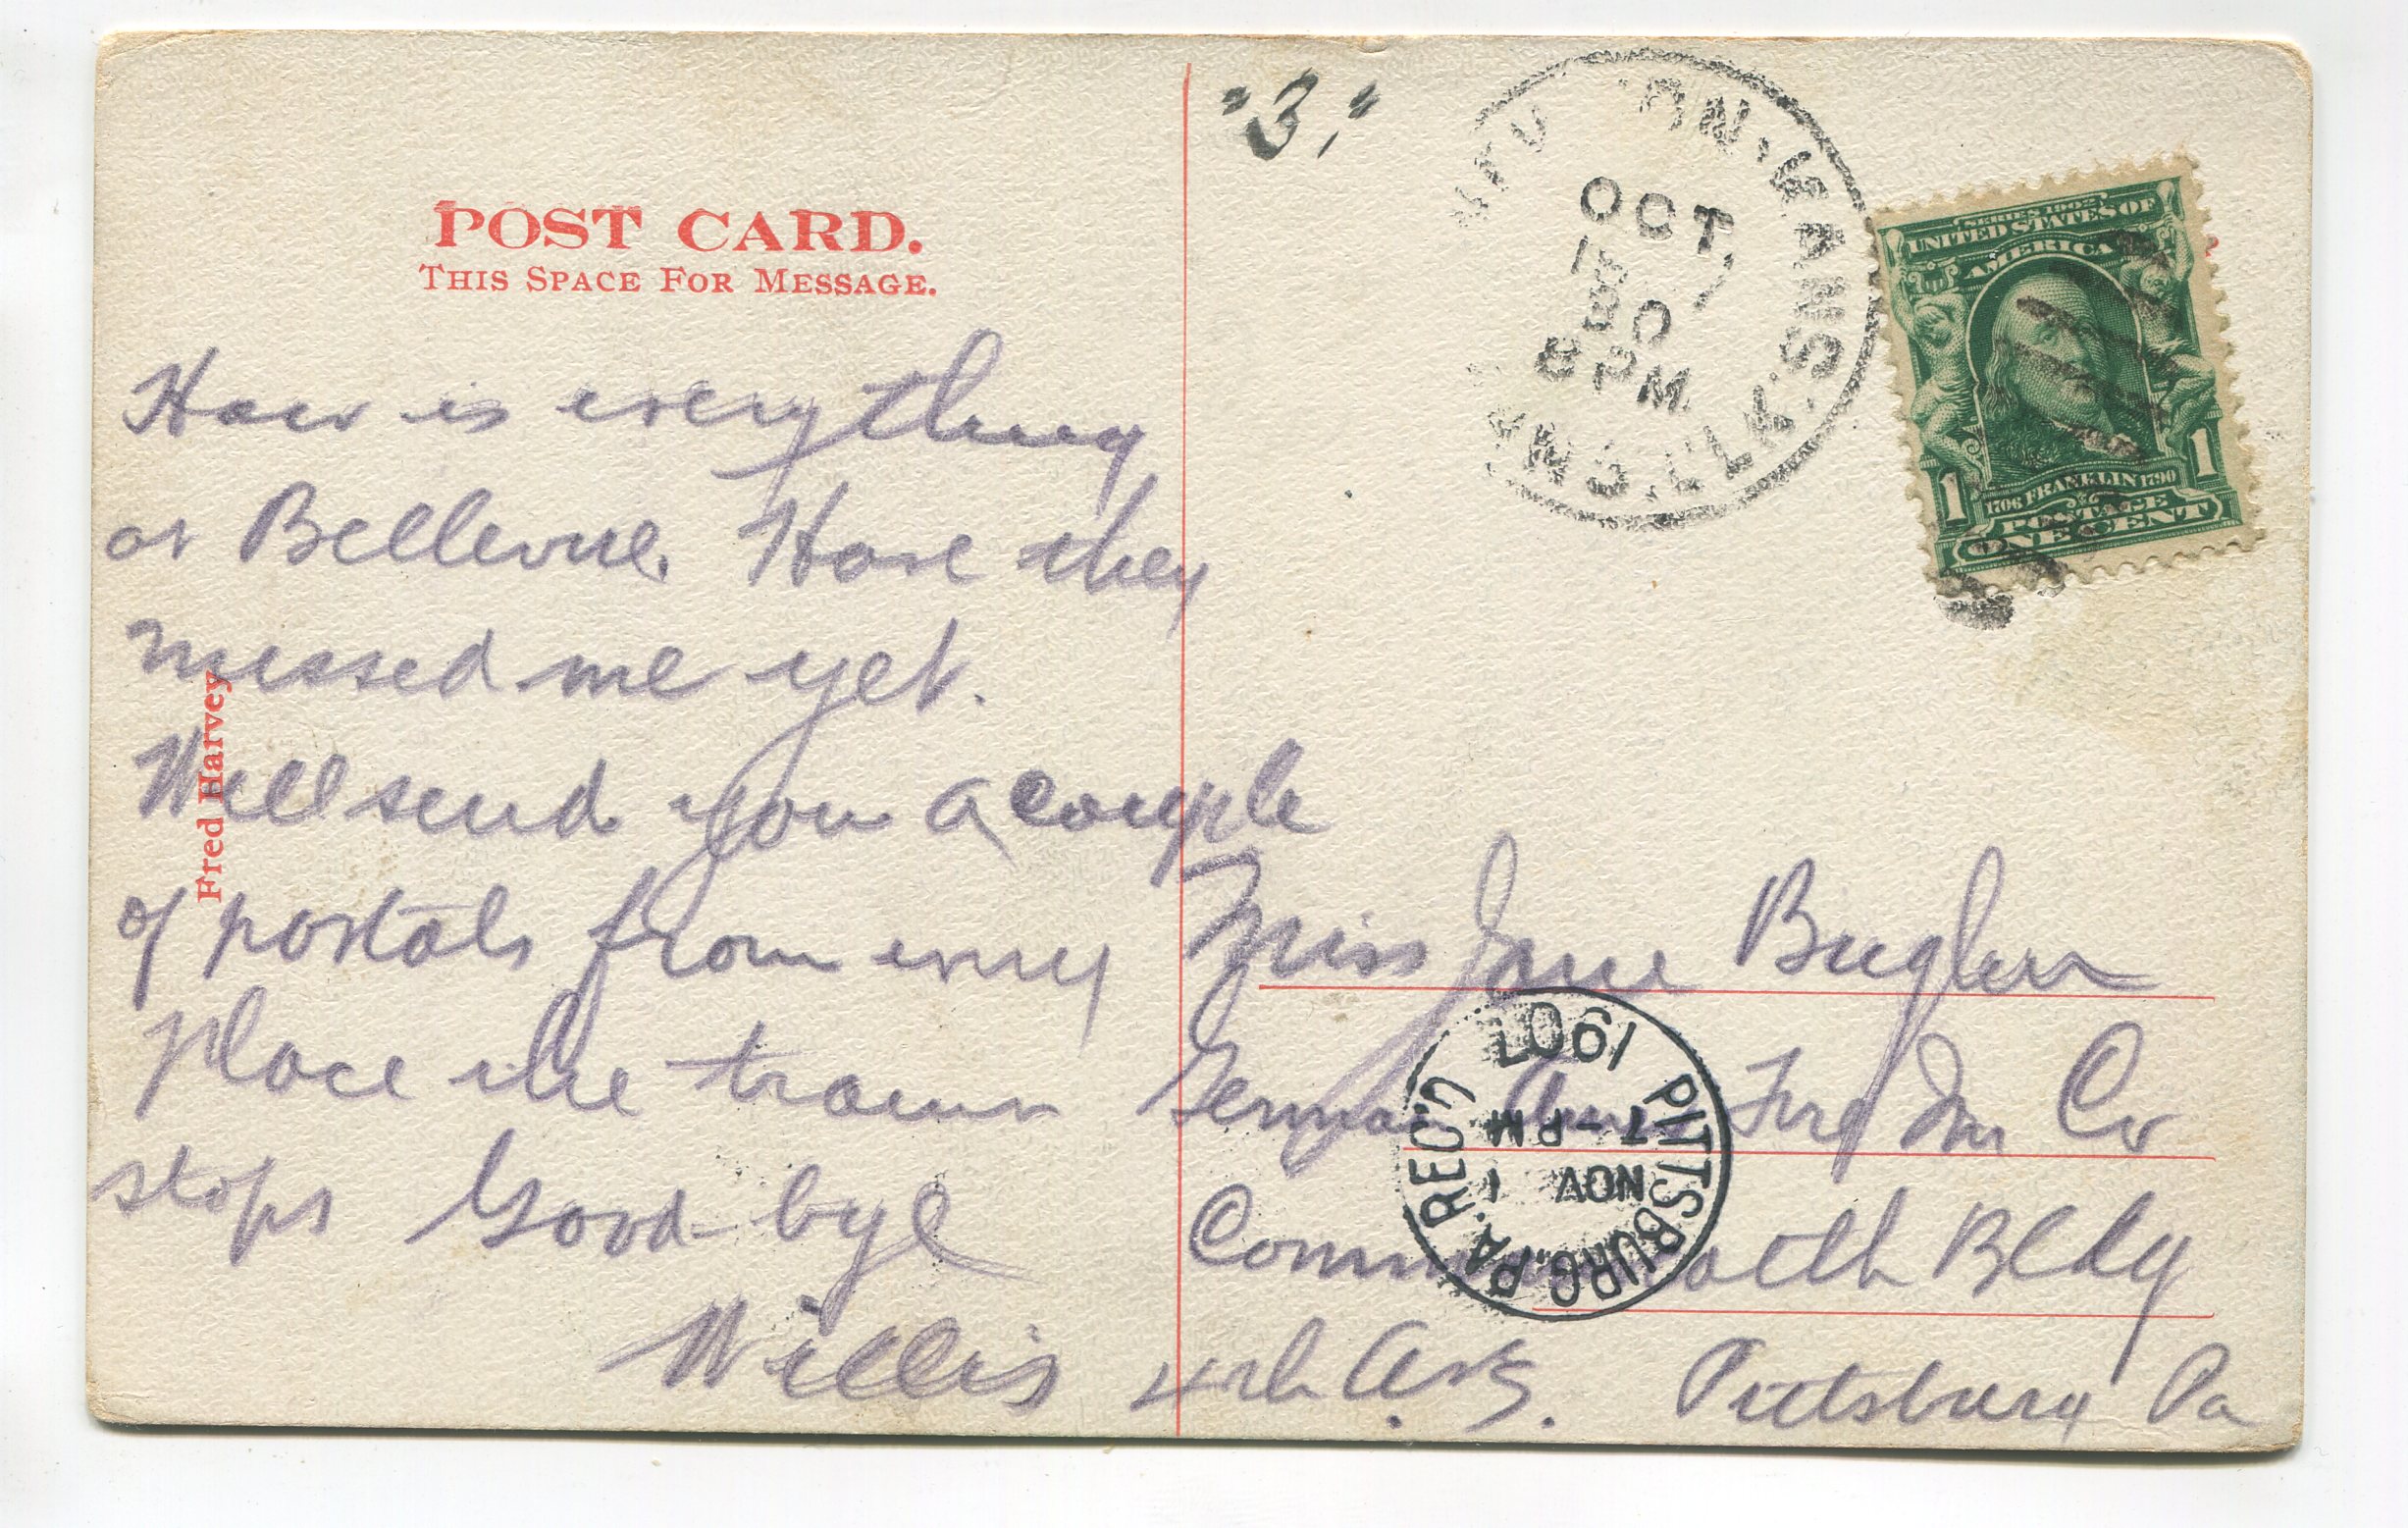 POST CARD.
THIS SPACE FOR MESSAGE.
How is everything
at Bellevue. Have they
missed me yet.
Will send you a couple
of postals from every
place the train
stops Good-bye
Willis
Fred Harvey
"3."
OCT
30
8 PM
KANS.
SERIES 1902
UNITED STATES OF
AMERICA
1706 FRANKLIN 1790
POSTAGE
ONE CENT
1 1
Miss Jane
German Amer Fire Ins Co
Bldg
4th Ave. Pittsburg Pa
PITTSBURG, PA. REC'D
1907
7 - PM
NOV 1